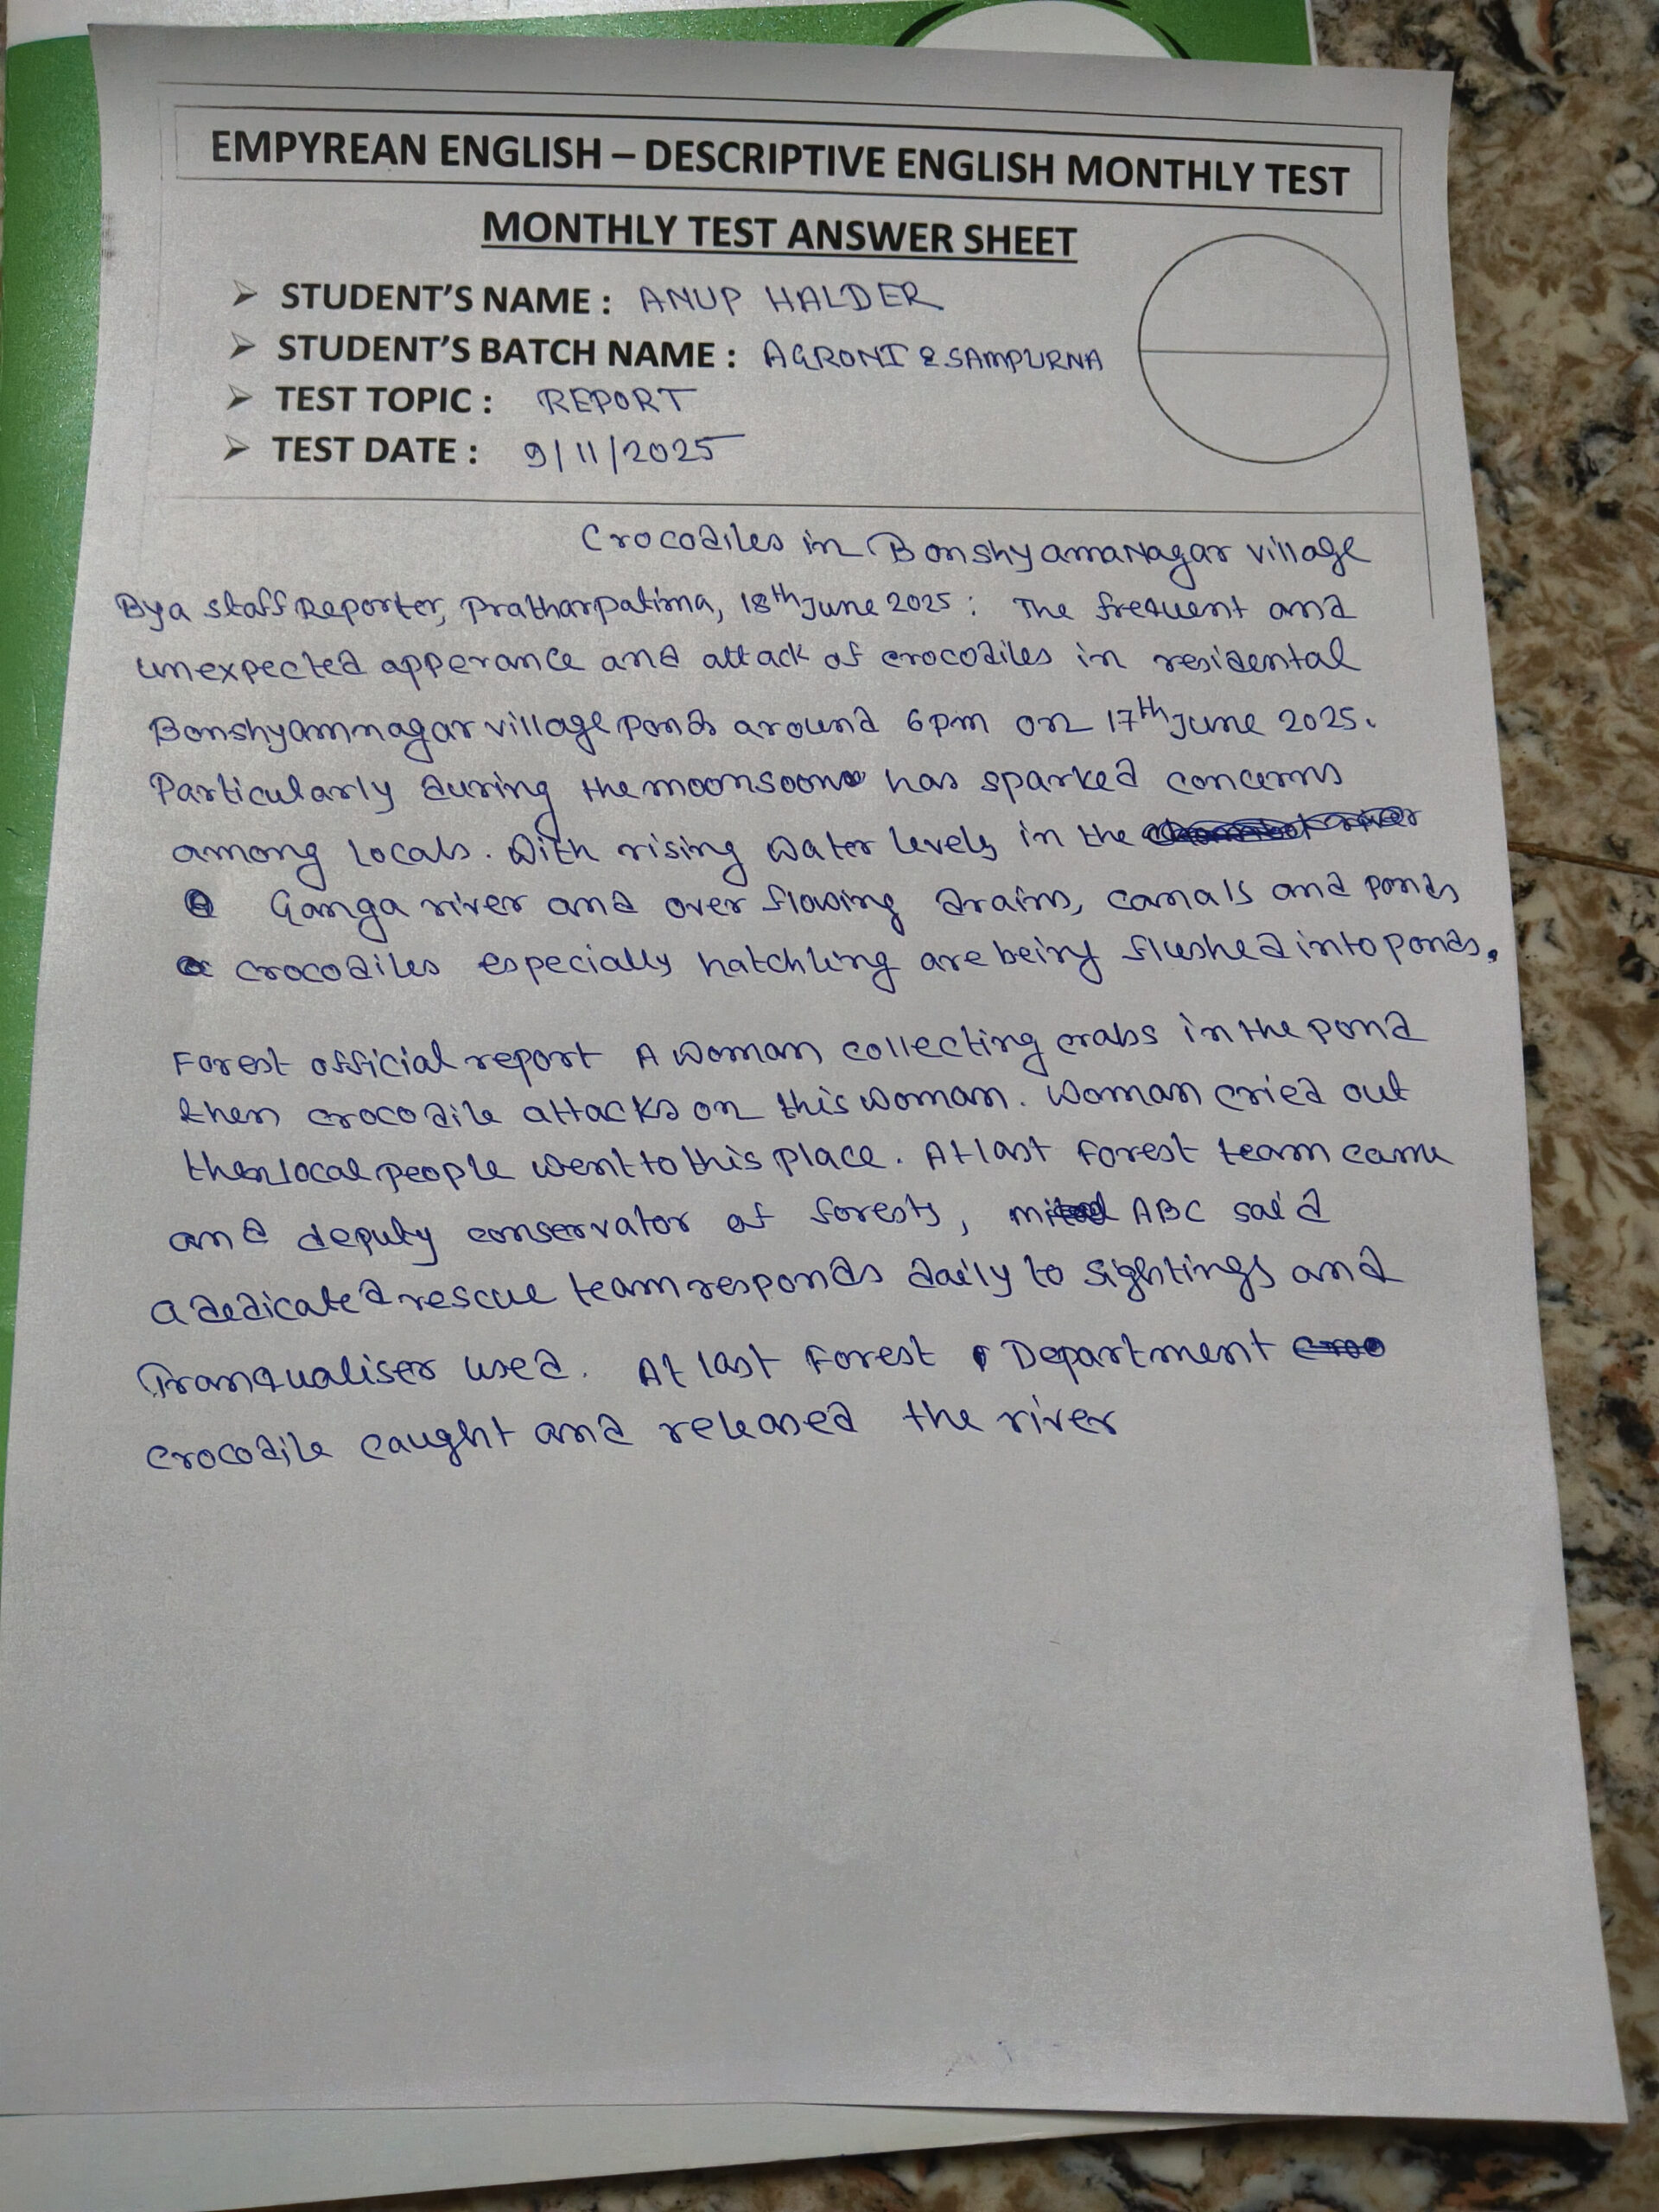 EMPYREAN ENGLISH – DESCRIPTIVE ENGLISH MONTHLY TEST
MONTHLY TEST ANSWER SHEET
➢ STUDENT'S NAME : ANUP HALDER
➢ STUDENT'S BATCH NAME : AGRONI & SAMPURNA
➢ TEST TOPIC : REPORT
➢ TEST DATE : 9/11/2025
Crocodiles in BonshyamaNagar village
By a staff Reporter, Pratharpatima, 18th June 2025: The frequent and
unexpected apperance and attack of crocodiles in residental
Bonshyamnagar village ponds around 6pm on 17th June 2025.
Particularly during the moonsoon has sparked concerns
among locals. With rising water levels in the
Ganga river and over flowing drains, canals and ponds
crocodiles especially hatchling are being flushed into ponds.
Forest official report A woman collecting crabs in the pond
then crocodile attacks on this woman. Woman cried out
then local people went to this place. At last Forest team came
and deputy conservator of forests, ABC said
a dedicated rescue team responds daily to sightings and
Tranqualiser used. At last Forest Department
crocodile caught and released the river